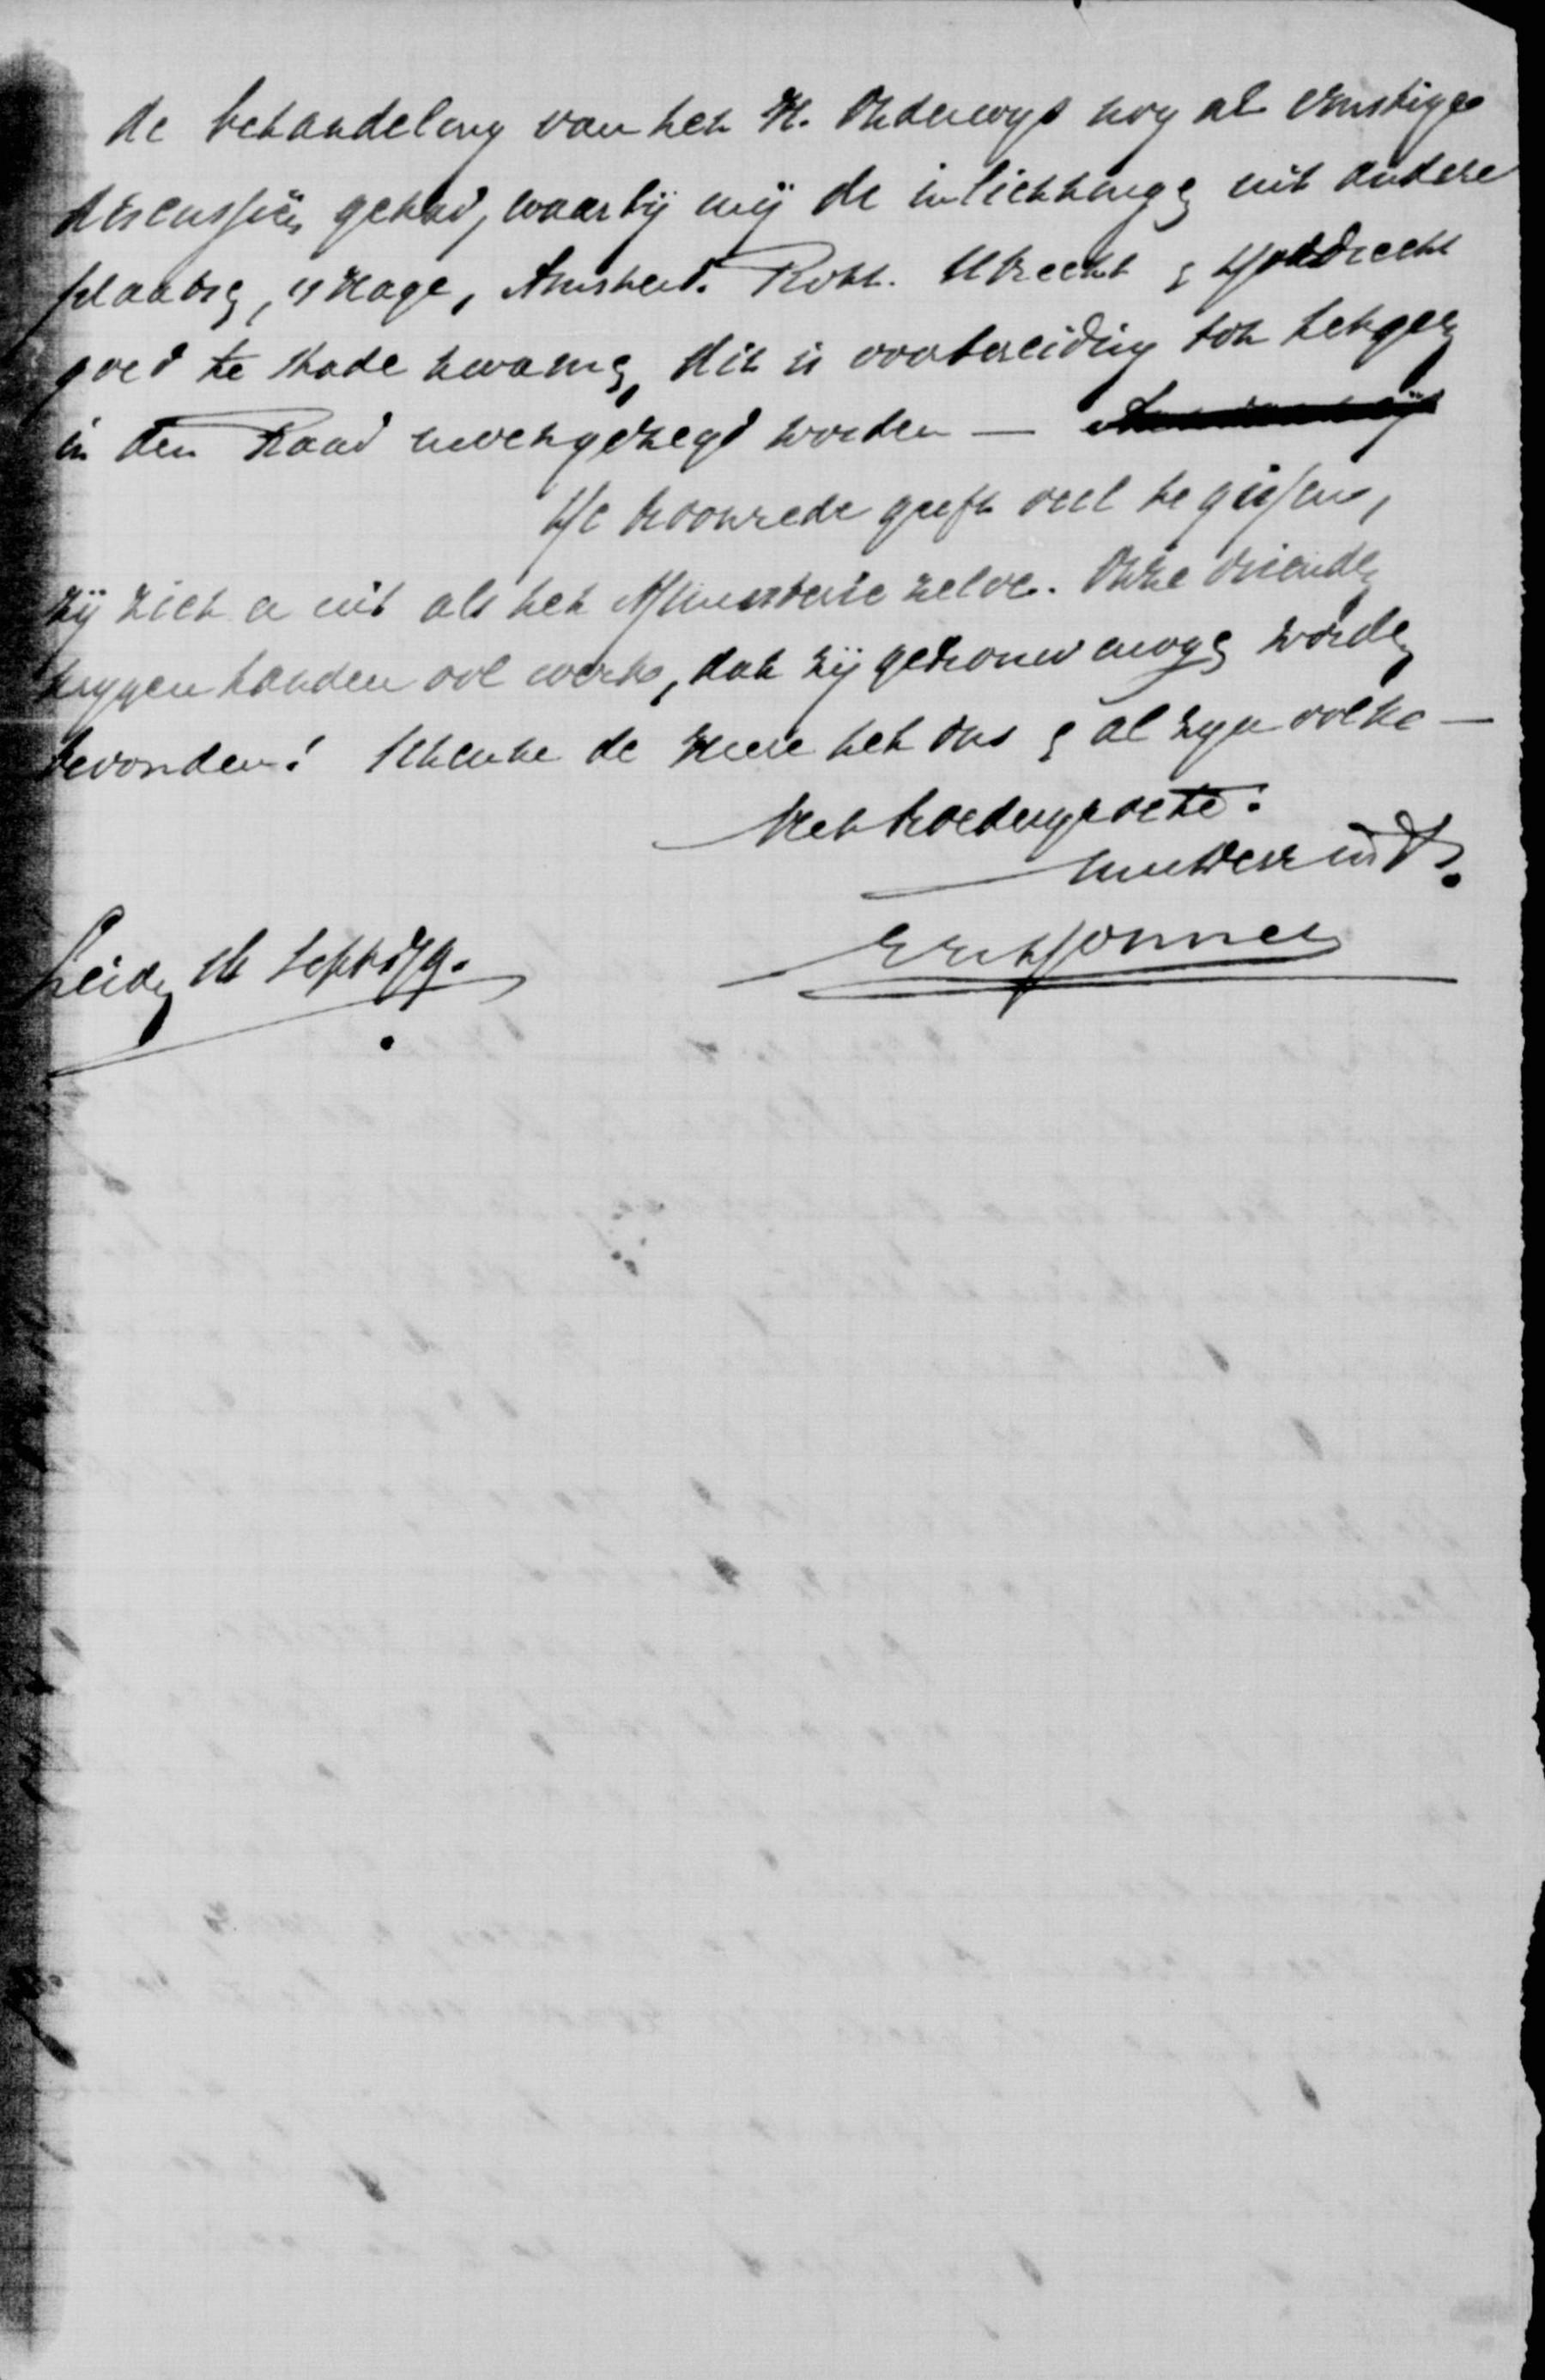 de behandeling van het H. Onderwys nog al ernstige
discussiën gehad, waarbij mij de inlichtingen uit andere
plaatsen, 's Hage, Amsterd. Rott. Utrecht en Dordrecht
goed te stade kwamen, dit is voorbereiding tot hetgeen
in den Raad moet gezegd worden —
De troonrede geeft veel te gissen,
zij ziet er uit als het Ministerie zelve. Onze vrienden
krygen handen vol werks, dat zij getrouw mogen worden
bevonden! Schenke de Heere het ons en al zyn volke —
Met broedergroete:
Leiden Sept 79.